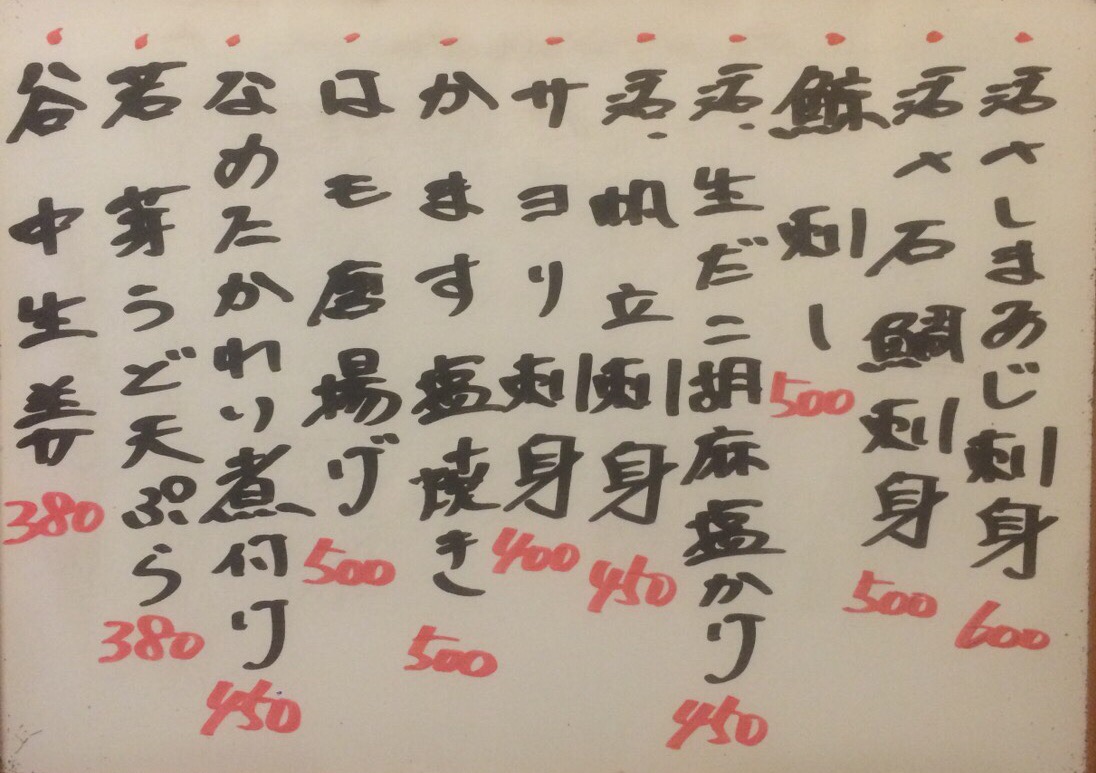 活〆しまあじ刺身 600
活〆石鯛刺身 500
鯨刺し 500
活.生だこ胡麻塩かけ 450
活.帆立刺身 450
サヨリ刺身 400
かます塩焼き 500
はも唐揚げ 500
なめたかれい煮付け 450
若芽うど天ぷら 380
谷中生姜 380